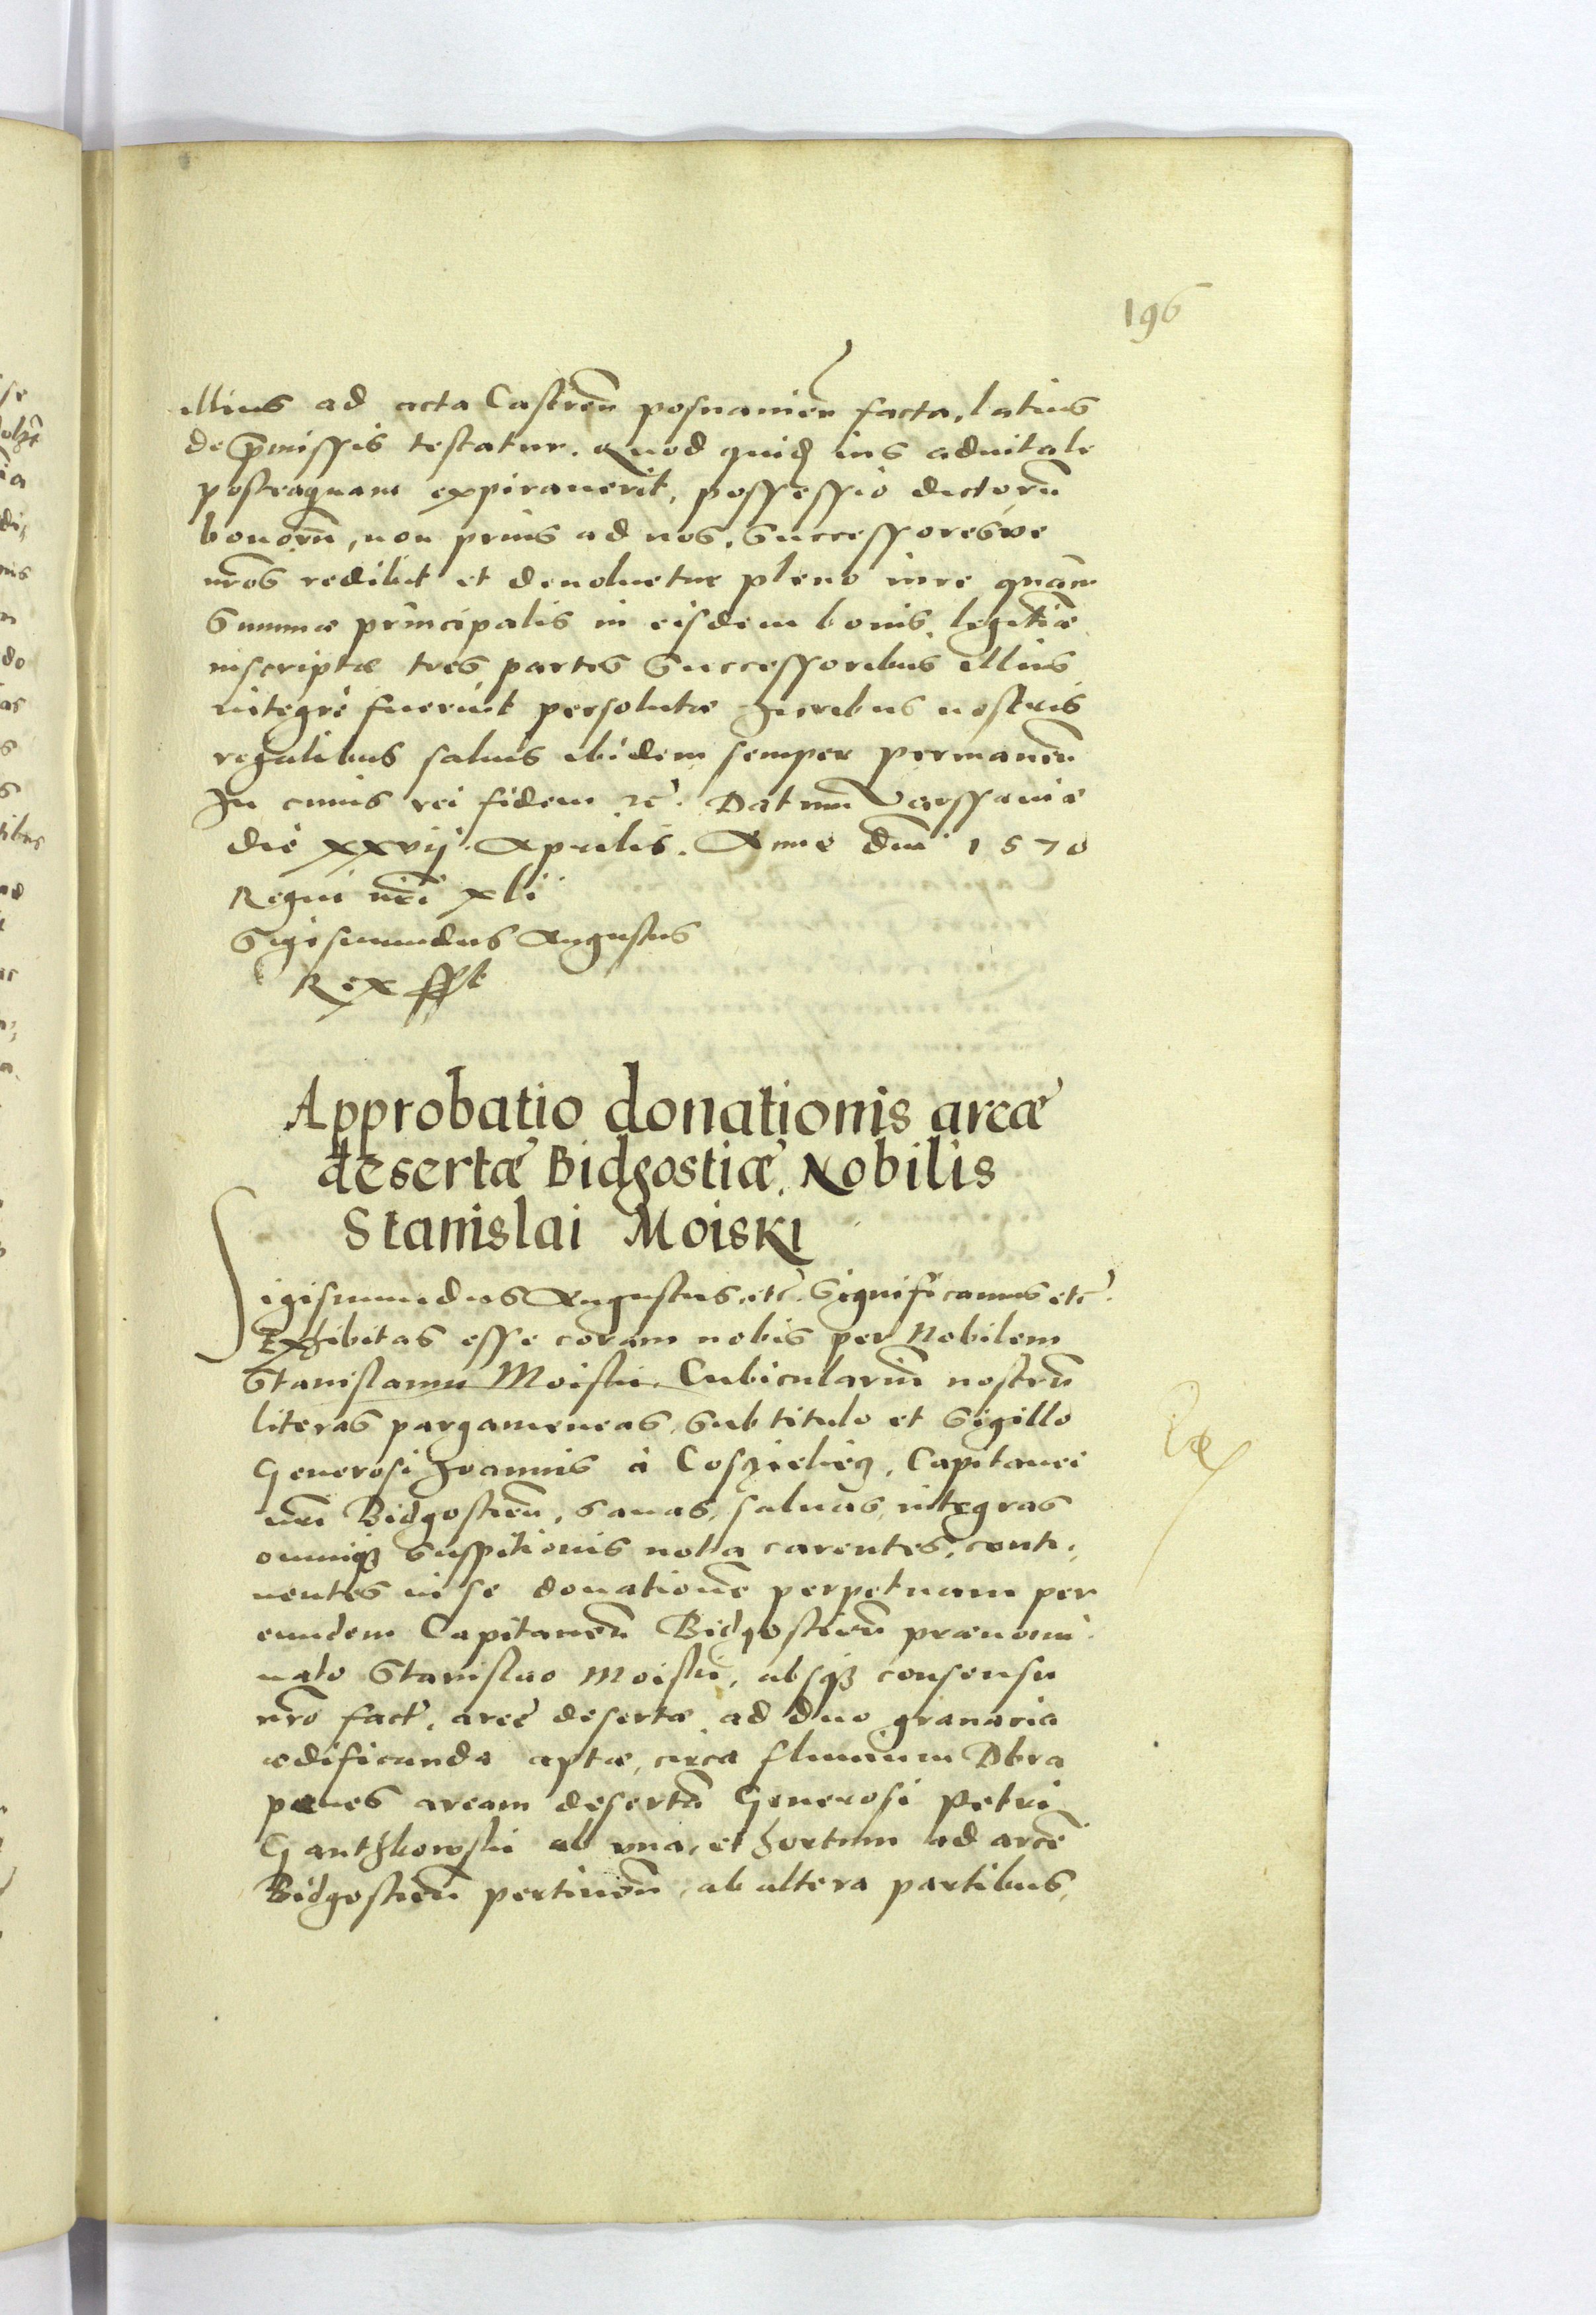 196
illius ad acta Castren̄ posnanien̄ facta, latius
de p̄missis testatur. Quod quid̨ ius aduitale
posteaquam expirauerit, possessio dictorū
bonorū, non prius ad nos, Successoresve
nr̄os redibit et deuoluetur pleno iure quam
Summæ principalis in eisdem bonis, legitimæ
inscriptæ tres partes Successoribus illius
integrè fuerint persolutæ Juribus nostris
regalibus saluis ibidem semper permanen̄
In cuius rei fidem etc̄. Datum Varssauiæ
die xxvij. Aprilis. Anno dn̄i 1570
Regni nr̄i xli
Sigismundus Augustus
Rex sspt
Approbatio donationis areæ
desertæ Bidgostiæ, Nobilis
Stanislai Moiski
Sigismundus Augustus, etc̄. Significamus etc̄.
Exhibitas esse coram nobis per Nobilem
Stanislaum Moiski, Cubiculariū nostrū
literas pargameneas, Sub titulo et Sigillo
Generosi Joannis à Cosczielecz, Capitanei
nr̄i Bidgostien̄, sanas, saluas, integras
omniq₃ Suspitionis nota carentes, conti-
nentes in se donationē perpetuam per
eundem Capitaneū Bidgostien̄ prænomi-
nato Stanislao Moiski, absq₃ consensu
nr̄o fact', areę desertæ ad duo granaria
ædificanda aptæ, circa fluuium Dbra
penes aream desertā Generosi Petri
Ganthkowski ab vna, et hortum ad arcē
Bidgostien̄ pertinen̄, ab altera partibus,